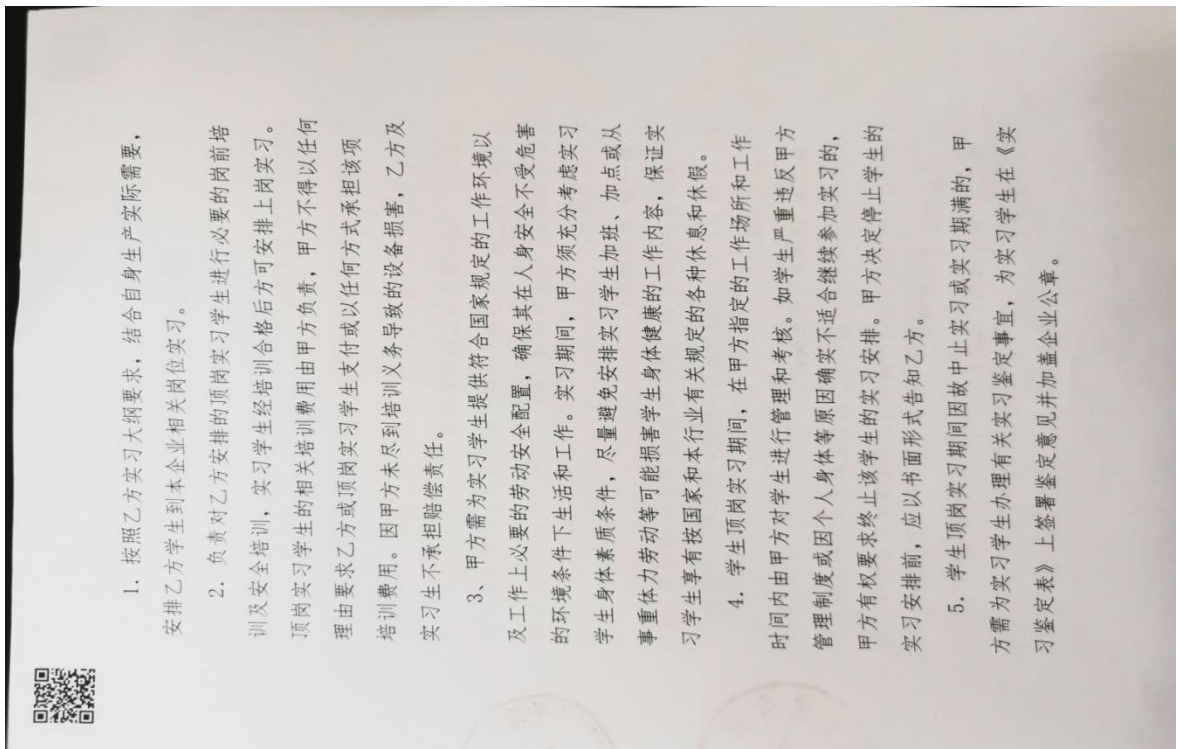 1. 按照乙方实习大纲要求，结合自身生产实际需要，
安排乙方学生到本企业相关岗位实习。
2. 负责对乙方安排的顶岗实习学生进行必要的岗前培
训及安全培训，实习学生经培训合格后方可安排上岗实习。
顶岗实习学生的相关培训费用由甲方负责，甲方不得以任何
理由要求乙方或顶岗实习学生支付或以任何方式承担该项
培训费用。因甲方未尽到培训义务导致的设备损害，乙方及
实习生不承担赔偿责任。
3、甲方需为实习学生提供符合国家规定的工作环境以
及工作上必要的劳动安全配置，确保其在人身安全不受危害
的环境条件下生活和工作。实习期间，甲方须充分考虑实习
学生身体素质条件，尽量避免安排实习学生加班、加点或从
事重体力劳动等可能损害学生身体健康的工作内容，保证实
习学生享有按国家和本行业有关规定的各种休息和休假。
4. 学生顶岗实习期间，在甲方指定的工作场所和工作
时间内由甲方对学生进行管理和考核。如学生严重违反甲方
管理制度或因个人身体等原因确实不适合继续参加实习的，
甲方有权要求终止该学生的实习安排。甲方决定停止学生的
实习安排前，应以书面形式告知乙方。
5. 学生顶岗实习期间因故中止实习或实习期满的，甲
方需为实习学生办理有关实习鉴定事宜，为实习学生在《实
习鉴定表》上签署鉴定意见并加盖企业公章。